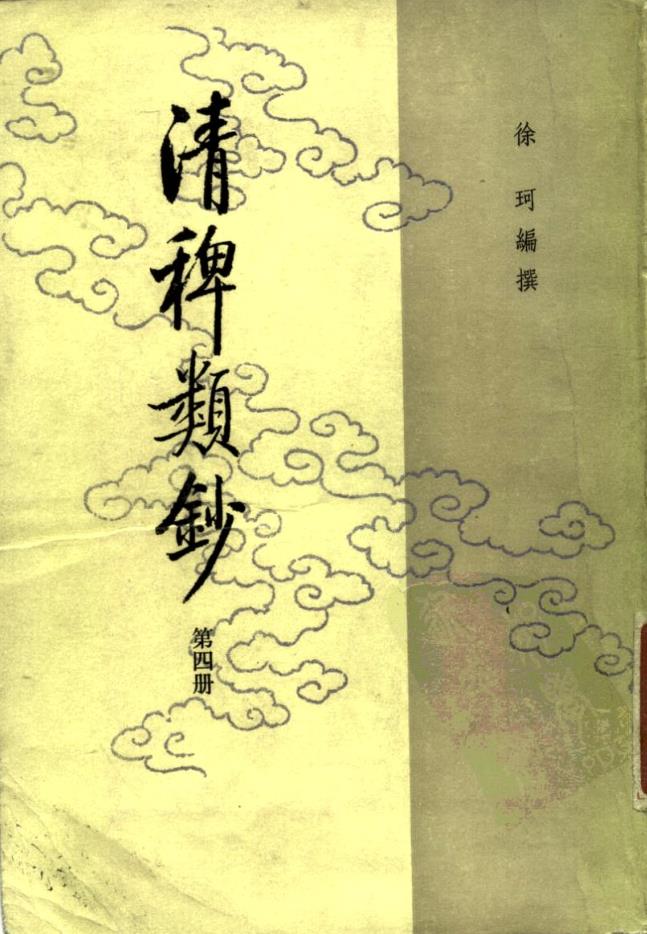 徐珂編撰
清稗類鈔
第四册